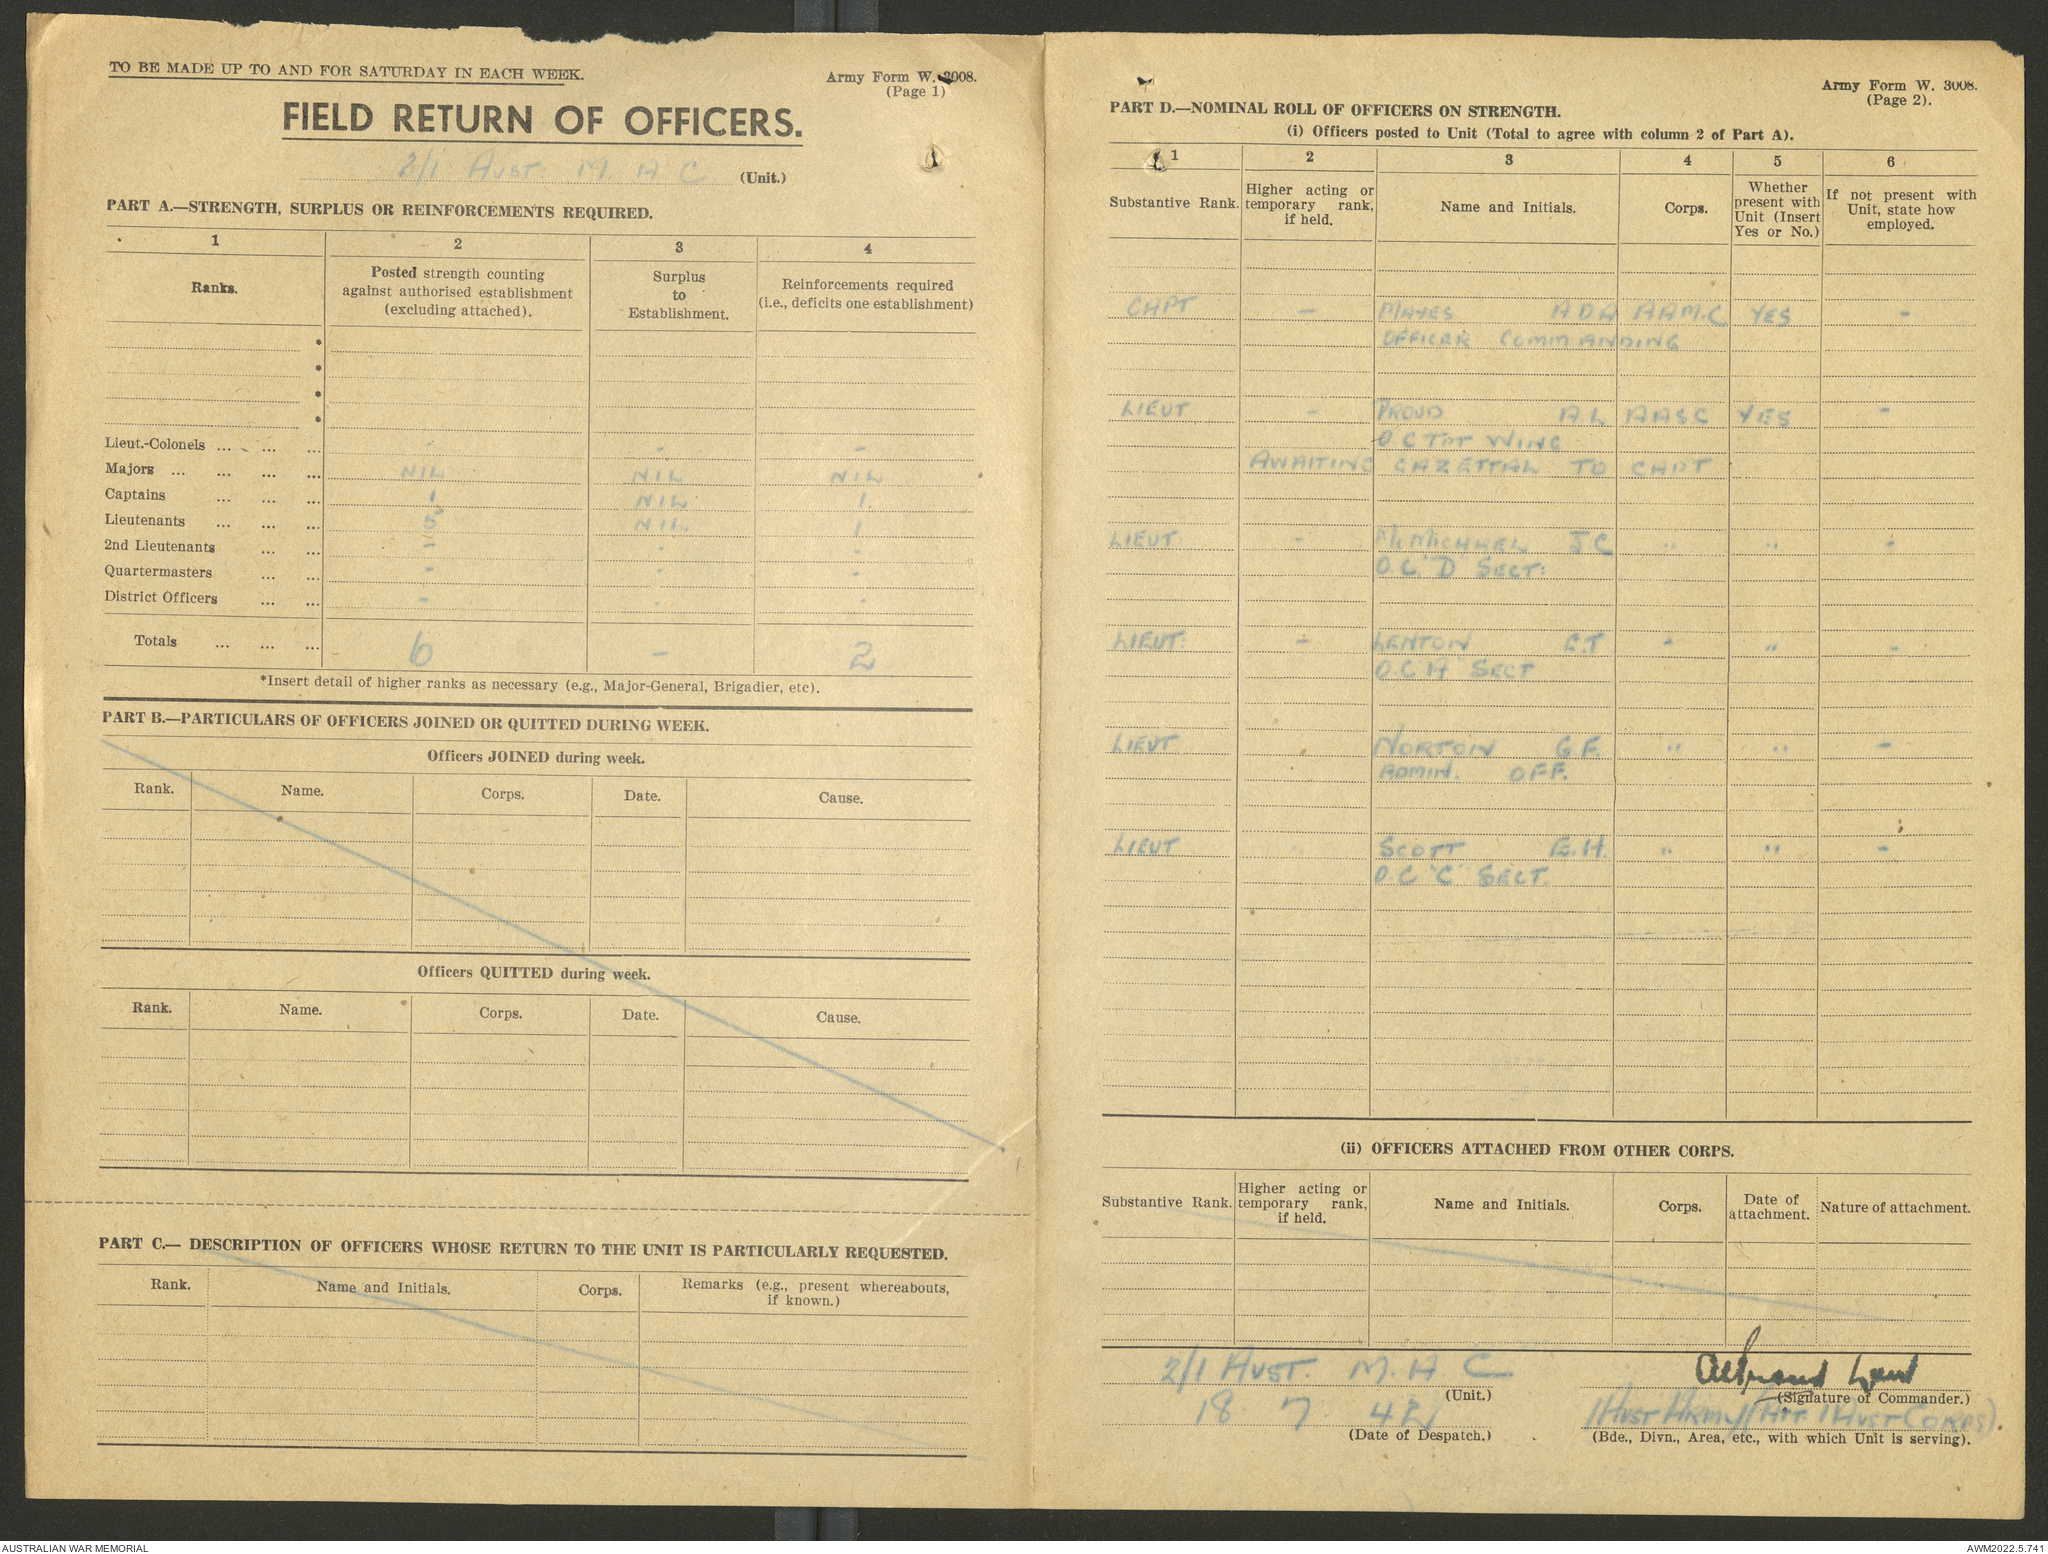 TO BE MADE UP TO AND FOR SATURDAY IN EACH WEEK.
Army Form W. 3008.
(Page 1)
FIELD RETURN OF OFFICERS.
2/1 AUST. M. A C. (Unit.)
PART A.—STRENGTH, SURPLUS OR REINFORCEMENTS REQUIRED.
1 2 3 4
Ranks. Posted strength counting against authorised establishment (excluding attached). Surplus to Establishment. Reinforcements required (i.e., deficits one establishment)
*
*
*
*
Lieut.-Colonels ... ... ... - - -
Majors ... ... ... ... NIL NIL NIL
Captains ... ... ... 1 NIL 1.
Lieutenants ... ... ... 5 NIL 1
2nd Lieutenants ... ... - - -
Quartermasters ... ... - - -
District Officers ... ... - - -
Totals ... ... ... 6 - 2
*Insert detail of higher ranks as necessary (e.g., Major-General, Brigadier, etc).
PART B.—PARTICULARS OF OFFICERS JOINED OR QUITTED DURING WEEK.
Officers JOINED during week.
Rank. Name. Corps. Date. Cause.
Officers QUITTED during week.
Rank. Name. Corps. Date. Cause.
PART C.— DESCRIPTION OF OFFICERS WHOSE RETURN TO THE UNIT IS PARTICULARLY REQUESTED.
Rank. Name and Initials. Corps. Remarks (e.g., present whereabouts, if known.)
Army Form W. 3008.
(Page 2).
PART D.—NOMINAL ROLL OF OFFICERS ON STRENGTH.
(i) Officers posted to Unit (Total to agree with column 2 of Part A).
1 2 3 4 5 6
Substantive Rank. Higher acting or temporary rank, if held. Name and Initials. Corps. Whether present with Unit (Insert Yes or No.) If not present with Unit, state how employed.
CAPT - MAYES A D A AAM.C YES -
OFFICER COMMANDING
LIEUT - PROUD A L AASC YES -
O C TPT WING
AWAITING GAZETTAL TO CAPT
LIEUT - McMICHAEL J.C " " -
O.C. "D" SECT:
LIEUT: - LENTON E.T " " -
O.C "A" SECT
LIEUT NORTON G F. " " -
ADMIN. OFF.
LIEUT SCOTT E.H. " " -
O.C "C" SECT.
(ii) OFFICERS ATTACHED FROM OTHER CORPS.
Substantive Rank. Higher acting or temporary rank, if held. Name and Initials. Corps. Date of attachment. Nature of attachment.
2/1 AUST. M. A C
(Unit.)
ALProud Lieut
(Signature of Commander.)
18 7. 42
(Date of Despatch.)
1 AUST ARMY (ATT 1 AUST CORPS).
(Bde., Divn., Area, etc., with which Unit is serving).
AUSTRALIAN WAR MEMORIAL
AWM2022.5.741